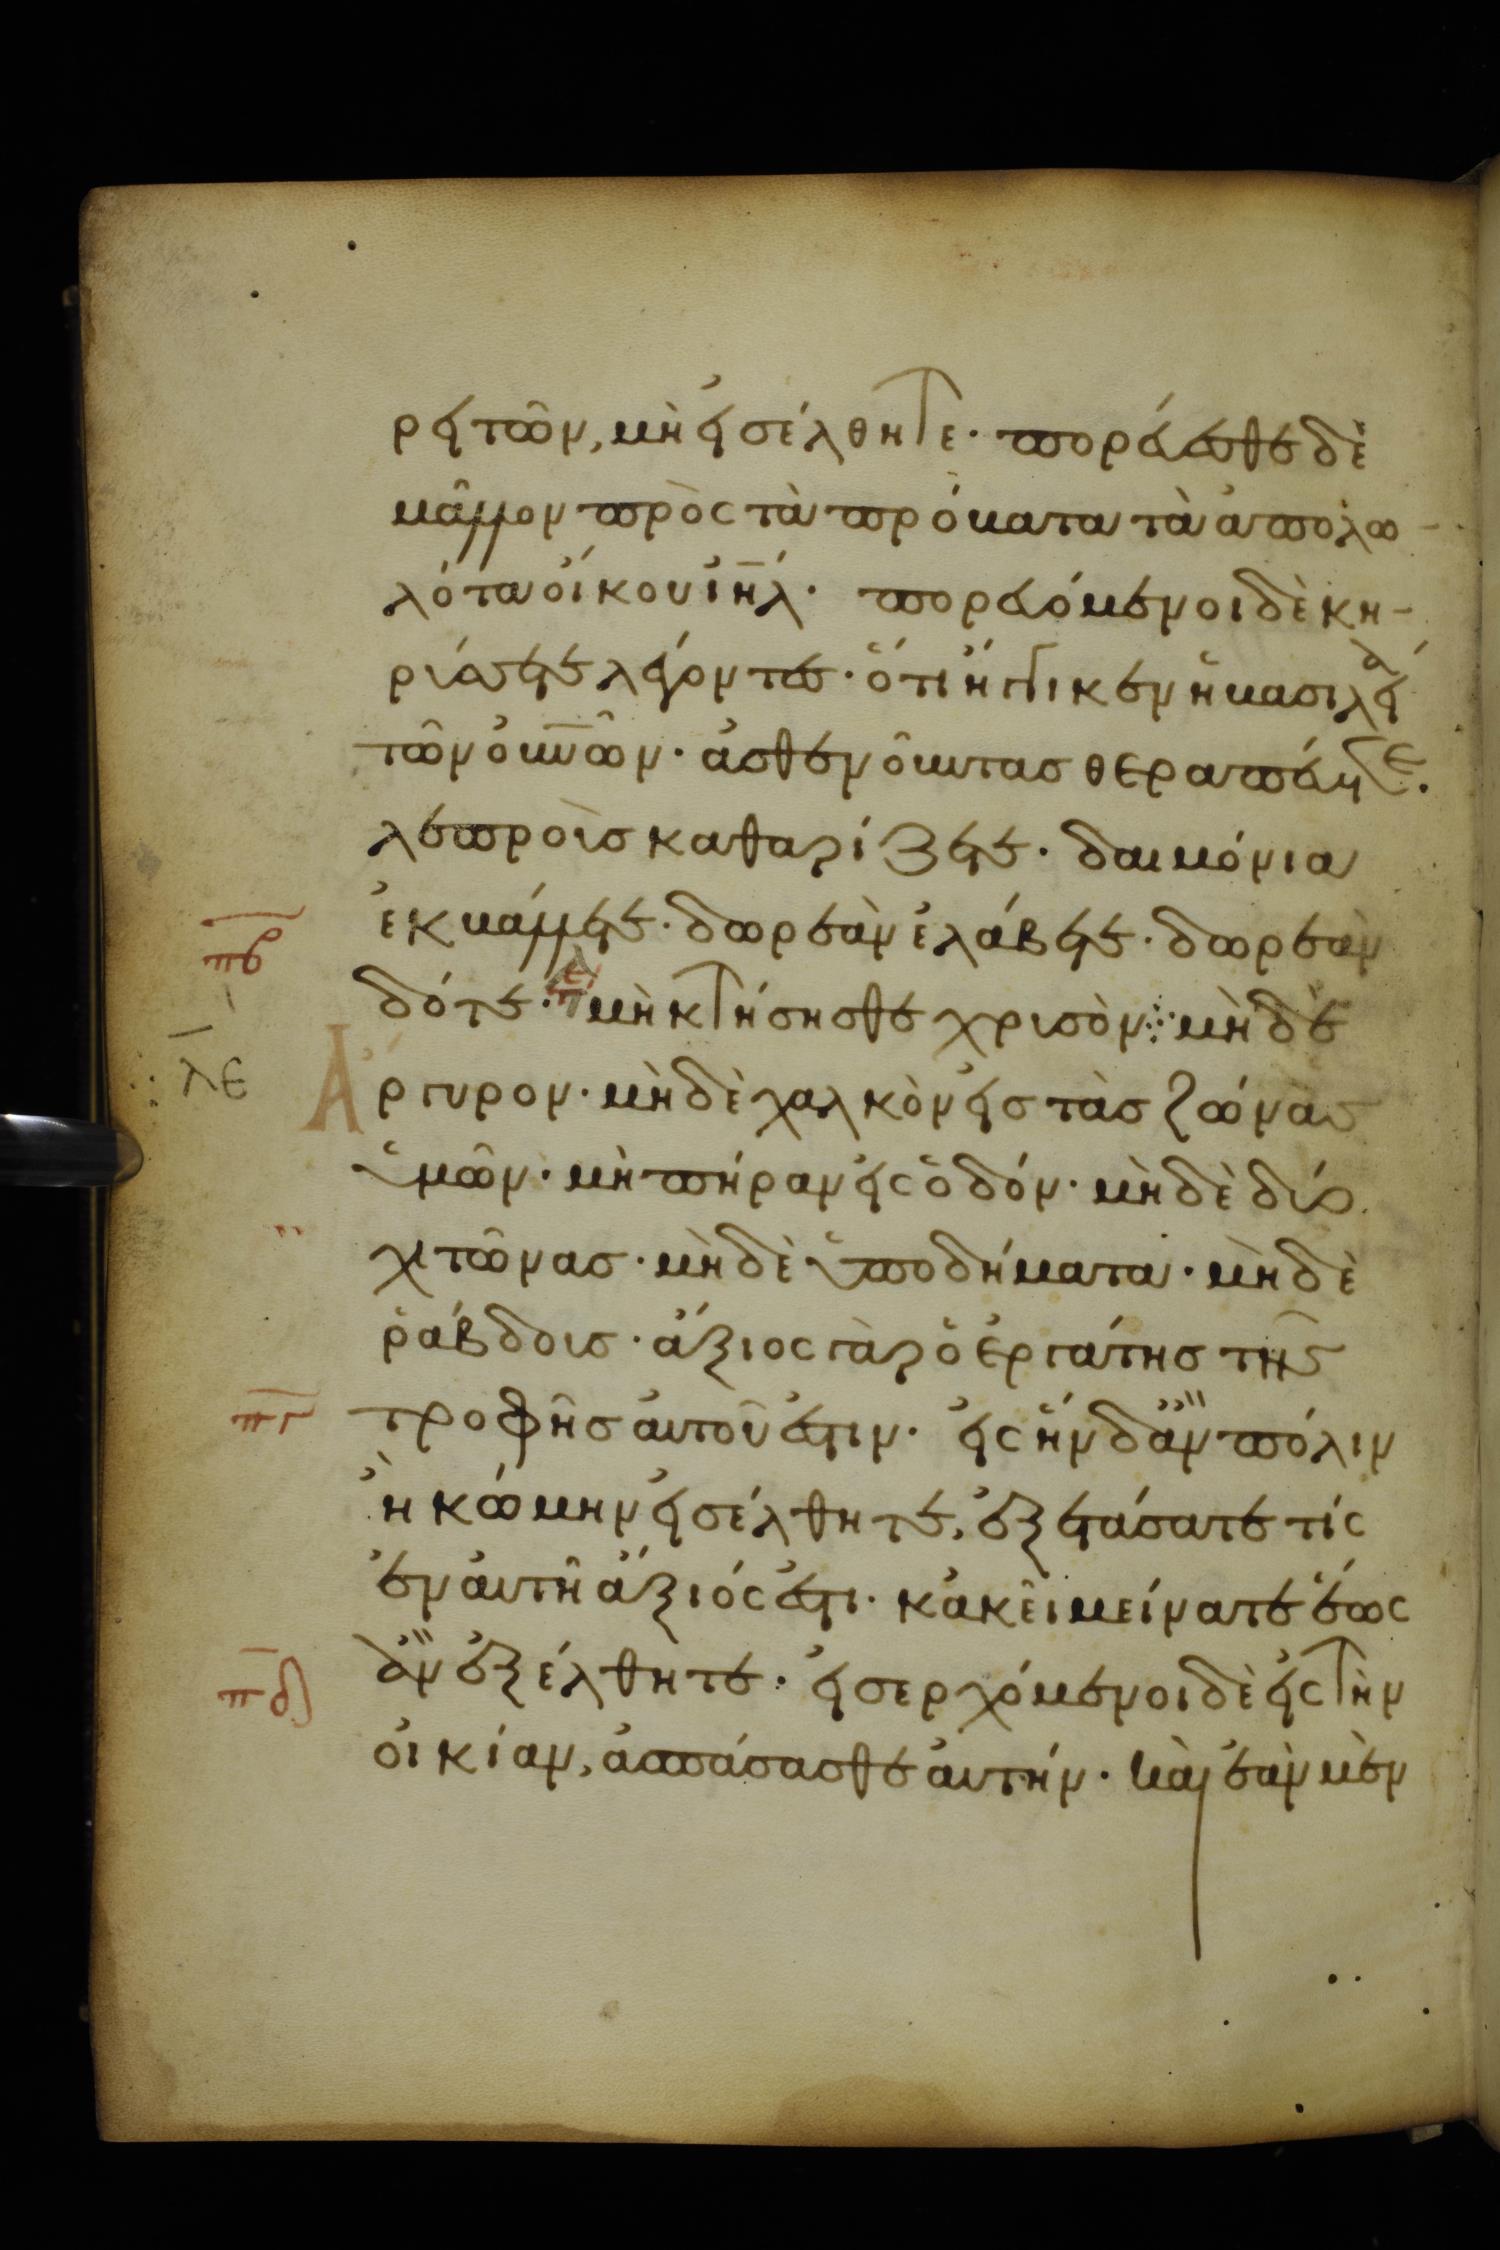 ρειτῶν, μὴ εἰσέλθητε· πορεύεσθε δὲ
μᾶλλον πρὸς τὰ πρόβατα τὰ ἀπολω-
λότα οἴκου ἰη̅λ· πορευόμενοι δὲ κη-
ρύσσετε λέγοντες· ὅτι ἤγγικεν ἡ βασιλεία
τῶν οὐν̅ῶν· ἀσθενοῦντας θεραπεύετε·
λεπροὺς καθαρίζετε· δαιμόνια
π̅β̅ ἐκβάλλετε· δωρεὰν ἐλάβετε· δωρεὰν
δότε· μὴ κτήσησθε χρυσὸν· μὴ δὲ
λ̅ε Ἄργυρον· μὴ δὲ χαλκὸν εἰς τὰς ζώνας
ὑμῶν· μὴ πήραν εἰς ὁδόν· μὴ δὲ δύο
χιτῶνας· μὴ δὲ ὑποδήματα· μὴ δὲ
ῥάβδους· ἄξιος γὰρ ὁ ἐργάτης τῆς
π̅γ̅ τροφῆς αὐτοῦ ἐστιν· εἰς ἣν δἂν πόλιν
ἢ κώμην εἰσέλθητε, ἐξετάσατε τίς
ἐν αὐτῆ ἄξιός ἐστι· κἀκεῖ μείνατε ἕως
π̅δ̅ ἂν ἐξέλθητε· εἰσερχόμενοι δὲ εἰς τὴν
οἰκίαν, ἀσπάσασθε αὐτήν· καὶ ἐὰν μὲν